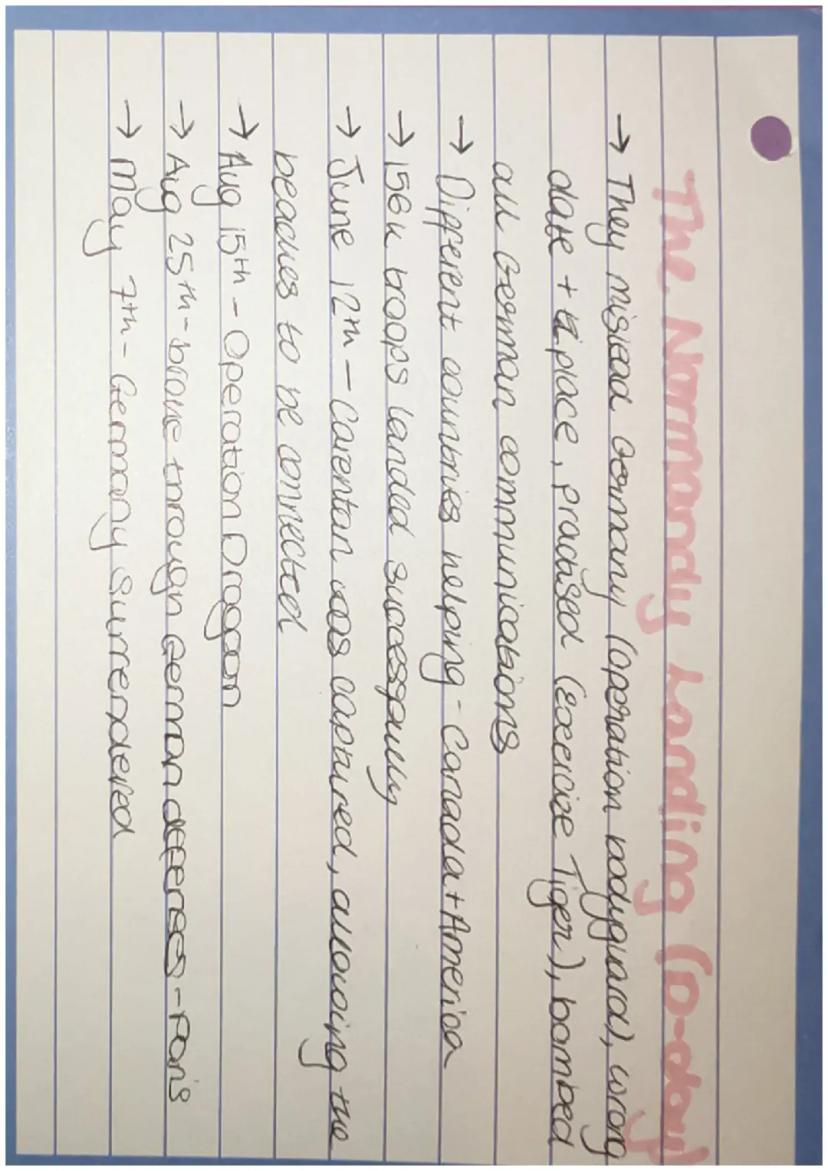 The Normandy Landing (D-day)
→ They mislead Germany (operation bodyguard), wrong
date + place, practised (Excercize Tiger), bombed
all German communications
→ Different countries helping - Canada + America
→ 156k troops landed successfully
→ June 12th - Carentan was captured, allowing the
beaches to be connected
→ Aug 15th - Operation Dragoon
→ Aug 25th - broke through German defenses - Paris
→ May 7th - Germany Surrendered